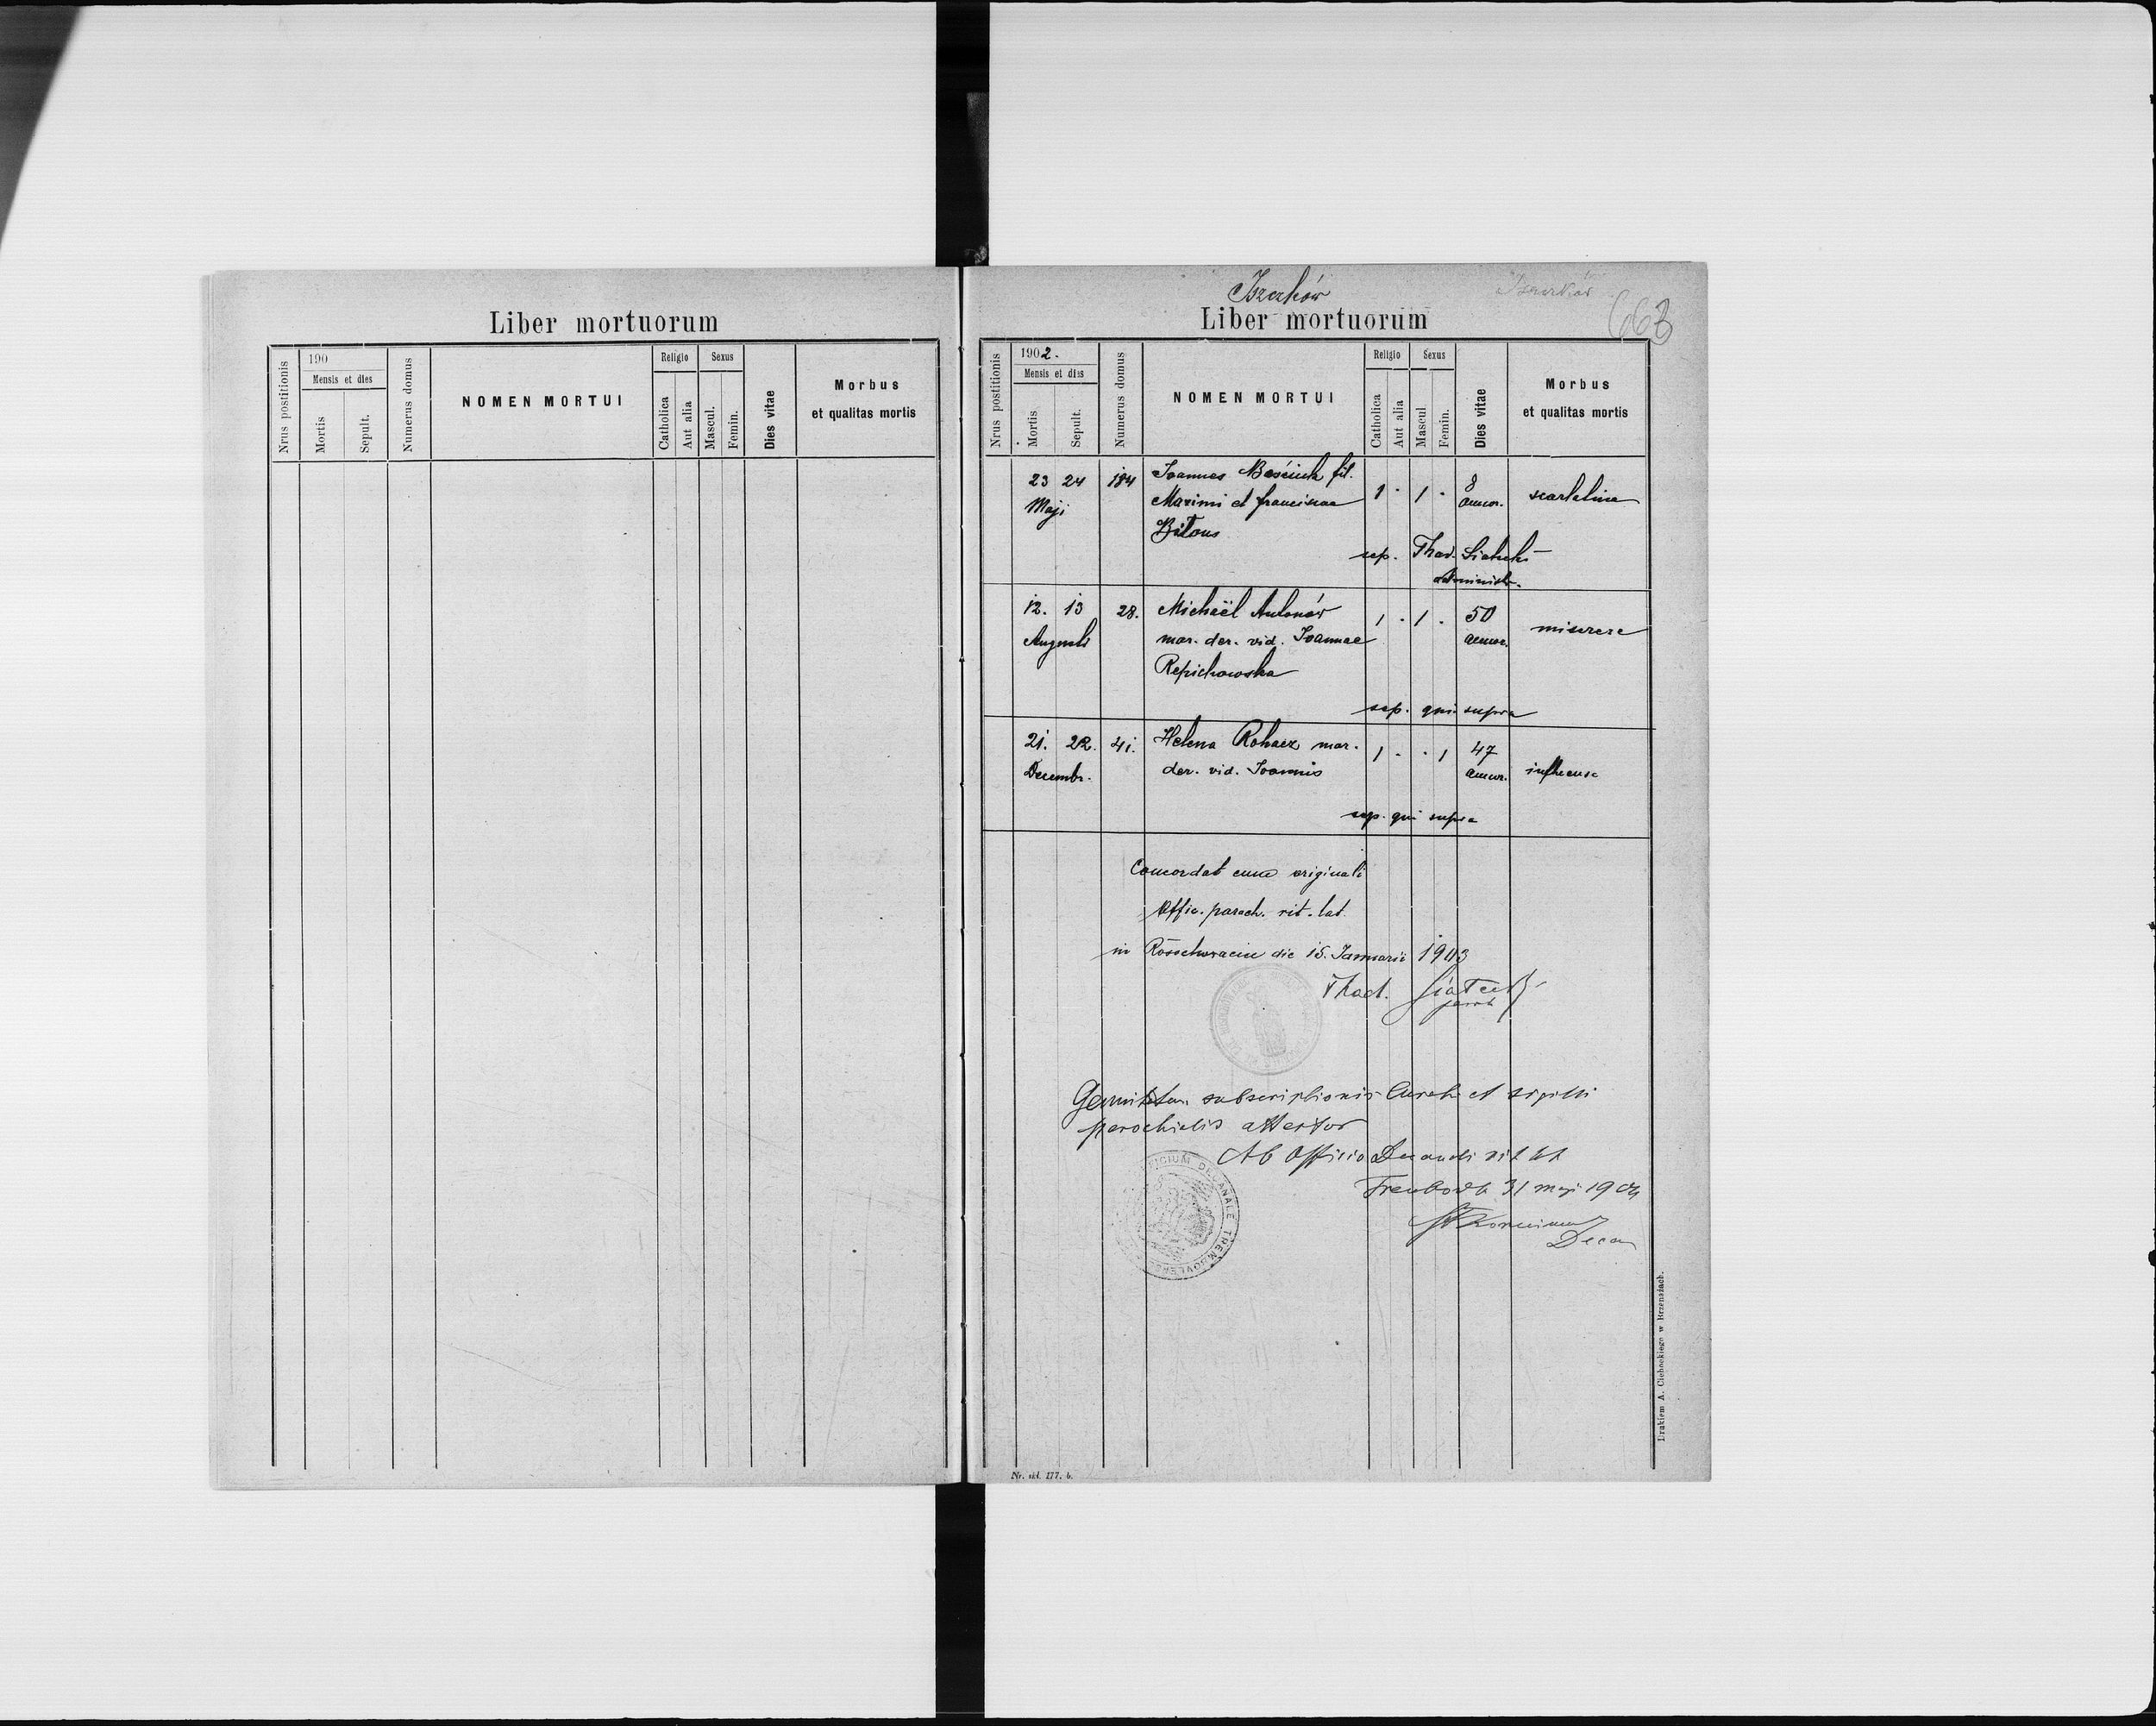 Liber mortuorum
Nrus postitionis
190
Mensis et dies
Mortis
Sepult.
Numerus domus
NOMEN MORTUI
Religio
Catholica
Aut alia
Sexus
Mascul.
Femin.
Dies vitae
Morbus
et qualitas mortis
Liber mortuorum
Nrus postitionis
1902.
Mensis et dies
Mortis
Sepult.
Numerus domus
NOMEN MORTUI
Religio
Catholica
Aut alia
Sexus
Mascul.
Femin.
Dies vitae
Morbus
et qualitas mortis
23 24 184 Joannes fil. 1 . 1 . 8 scarlatina
Maji Maximi et Franciscae annor.
sep. Thad.
administr.
12. 13 28. Michaël Antonów 1 . 1 . 50 miserere
Augusti mar. der. vid. Joannae annor.
Repichowska
sep. qui supra
21. 22. 41. Helena Rohacz mar. 1 . . 1 47
Decembr. der. vid. Joannis annor.
sep. qui supra
Concordat cum originali
Offic. paroch. rit. lat.
in die 15. Januarii 1903
Thad.
subscriptionis Curati et sigilli
parochialis attestor
Ab Officio Decanali rit lat
31 maji 1904
Decan
OFFICIUM DECANALE TREMBOVLENSE
Nr. skł. 177. b.
Drukiem A. Cichockiego w Brzeżanach.